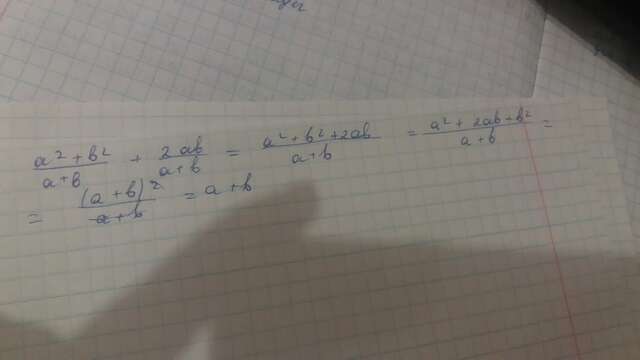 a² + b² / a + b + 2ab / a + b = a² + b² + 2ab / a + b = a² + 2ab + b² / a + b =
= (a + b)² / a + b = a + b